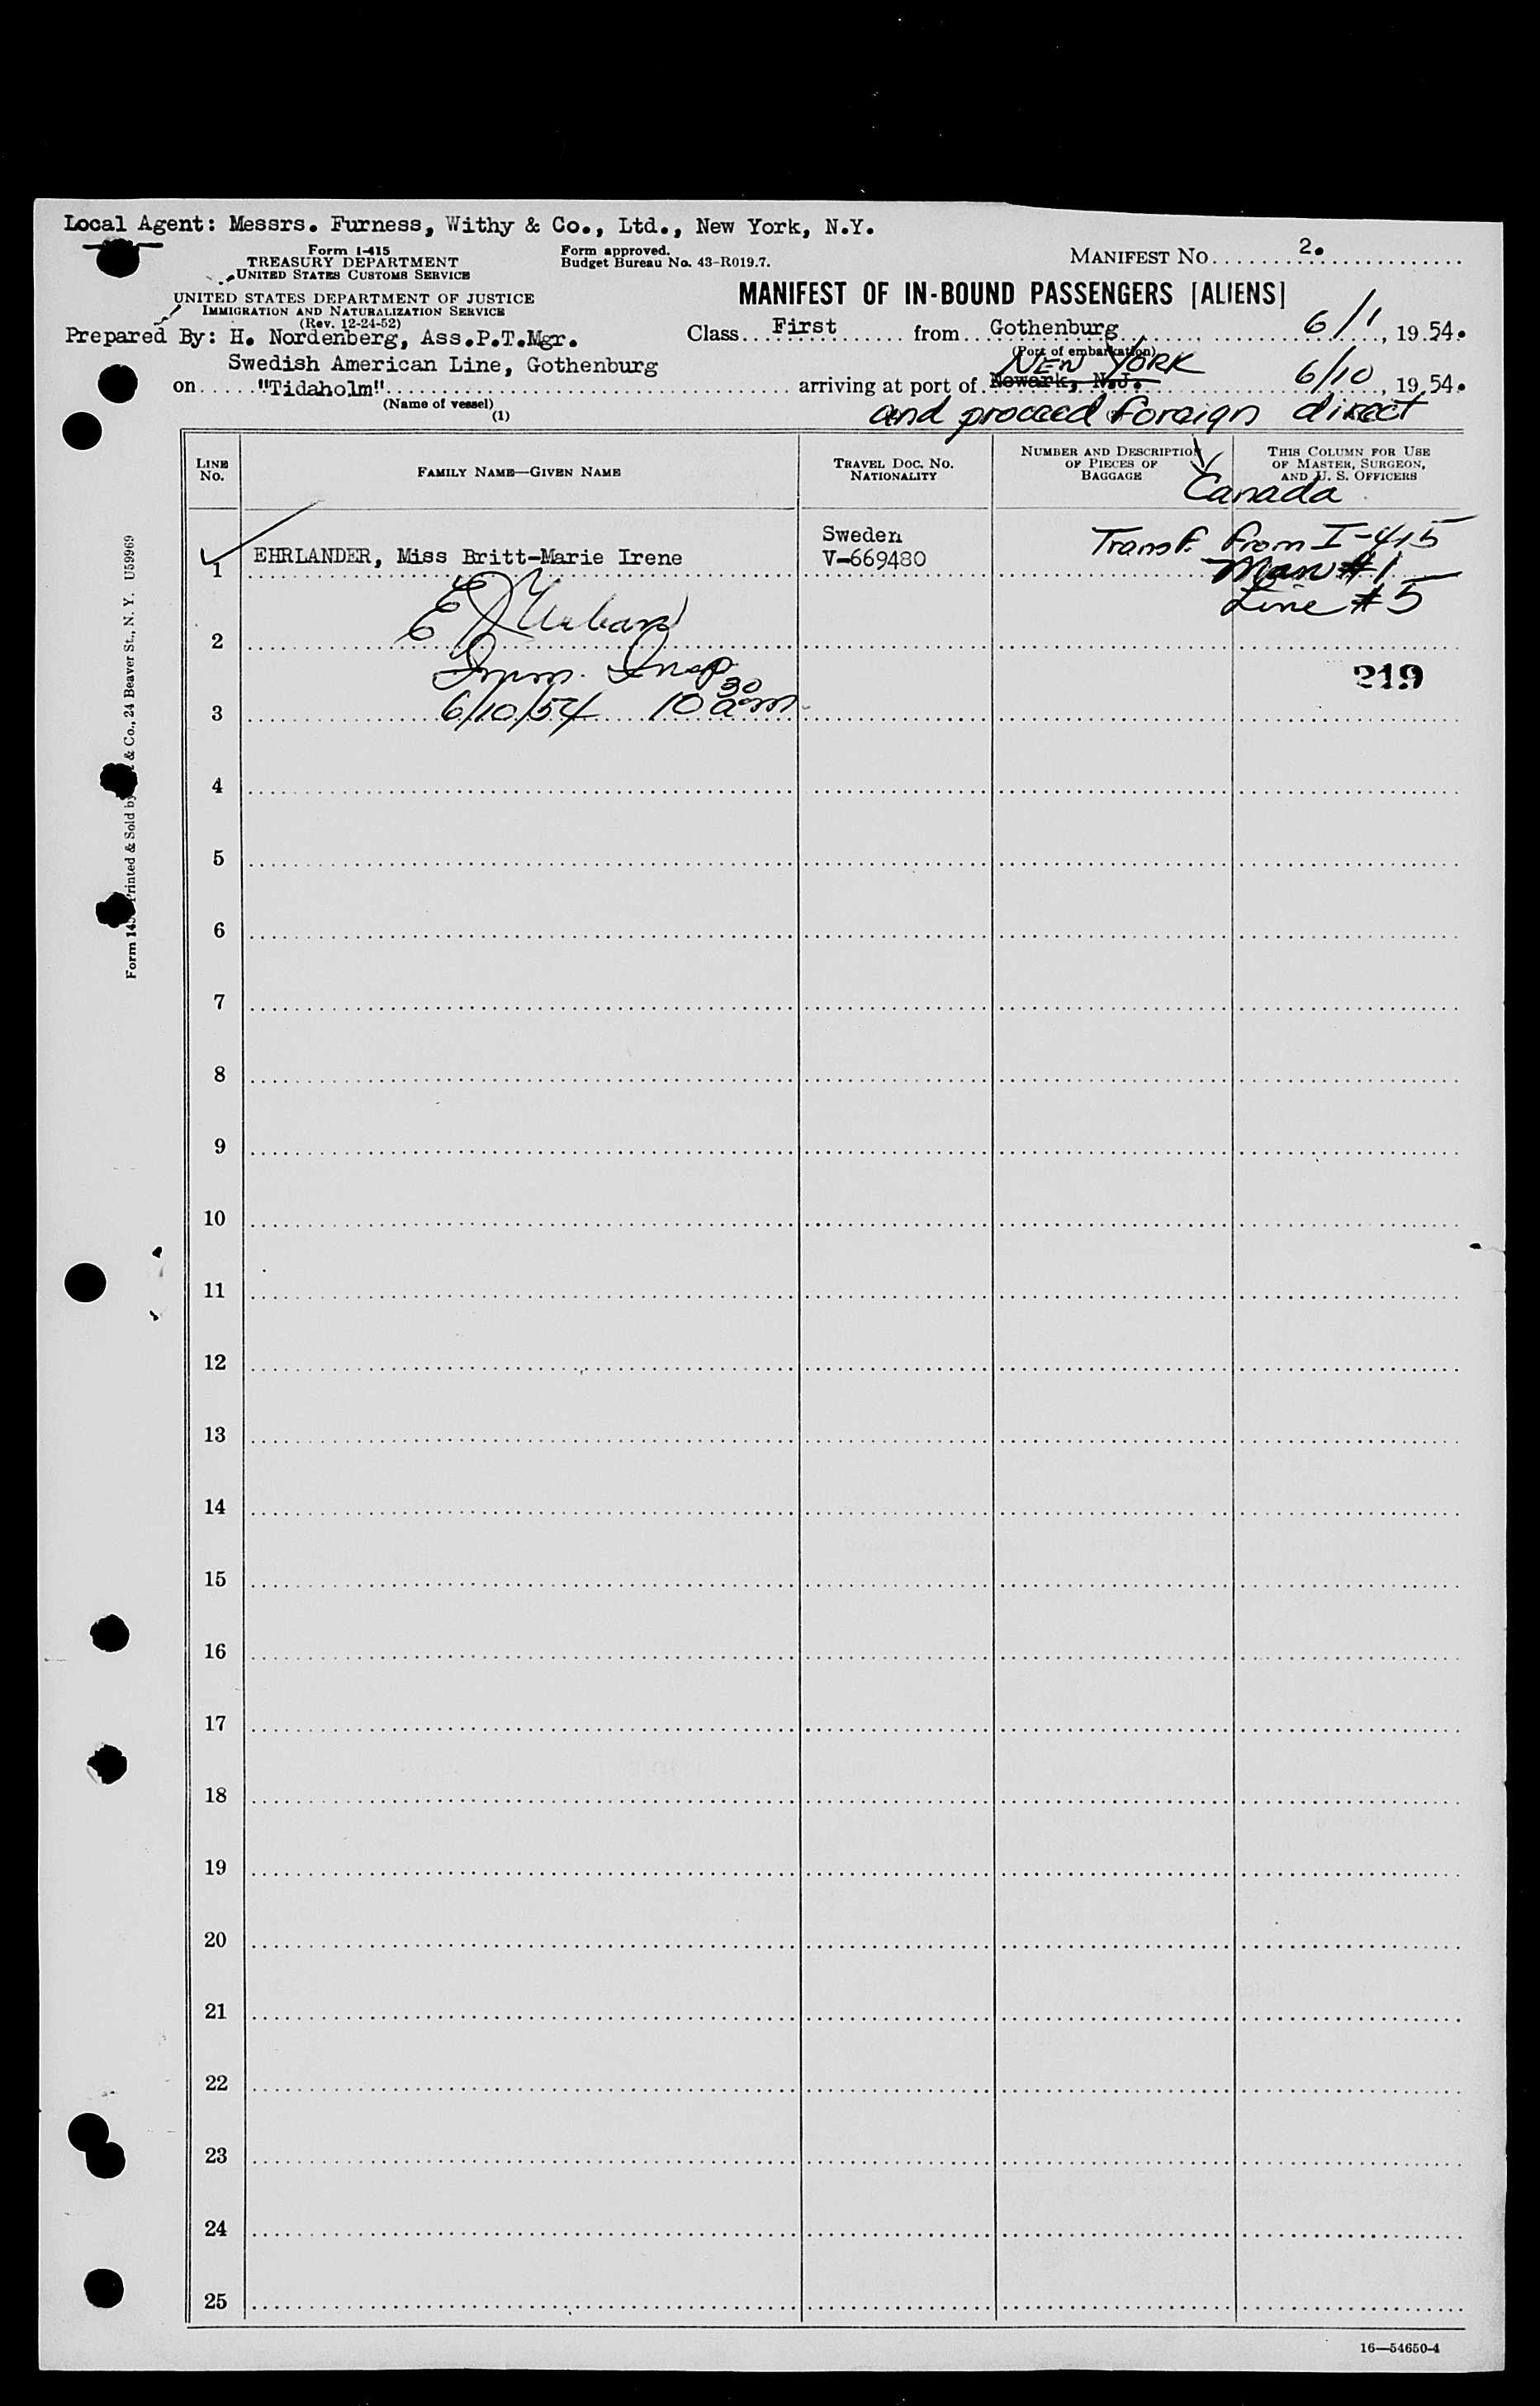 Local Agent: Messrs. Furness, Withy & Co., Ltd., New York, N.Y.
Form I-415
TREASURY DEPARTMENT
UNITED STATES CUSTOMS SERVICE
Form approved.
Budget Bureau No. 43-R019.7.
MANIFEST NO. 2.
UNITED STATES DEPARTMENT OF JUSTICE
IMMIGRATION AND NATURALIZATION SERVICE
(Rev. 12-24-52)
MANIFEST OF IN-BOUND PASSENGERS [ALIENS]
Prepared By: H. Nordenberg, Ass.P.T.Mgr.
Swedish American Line, Gothenburg
Class First from Gothenburg 6/1, 1954.
(Port of embarkation)
NEW YORK
on "Tidaholm" arriving at port of Newark, N.J. 6/10, 1954.
(Name of vessel)
(1)
and proceed foreign direct
LINE NO.
FAMILY NAME—GIVEN NAME
TRAVEL DOC. NO.
NATIONALITY
NUMBER AND DESCRIPTION
OF PIECES OF
BAGGAGE
THIS COLUMN FOR USE
OF MASTER, SURGEON,
AND U. S. OFFICERS
Canada
1 EHRLANDER, Miss Britt-Marie Irene
Sweden
V-669480
Transf. from I-415
Man #1
Line #5
2
Imm. Insp
219
3 6/10/54 10 30 am
4
5
6
7
8
9
10
11
12
13
14
15
16
17
18
19
20
21
22
23
24
25
Printed & Sold by & Co., 24 Beaver St., N. Y. U59969
16—54650-4